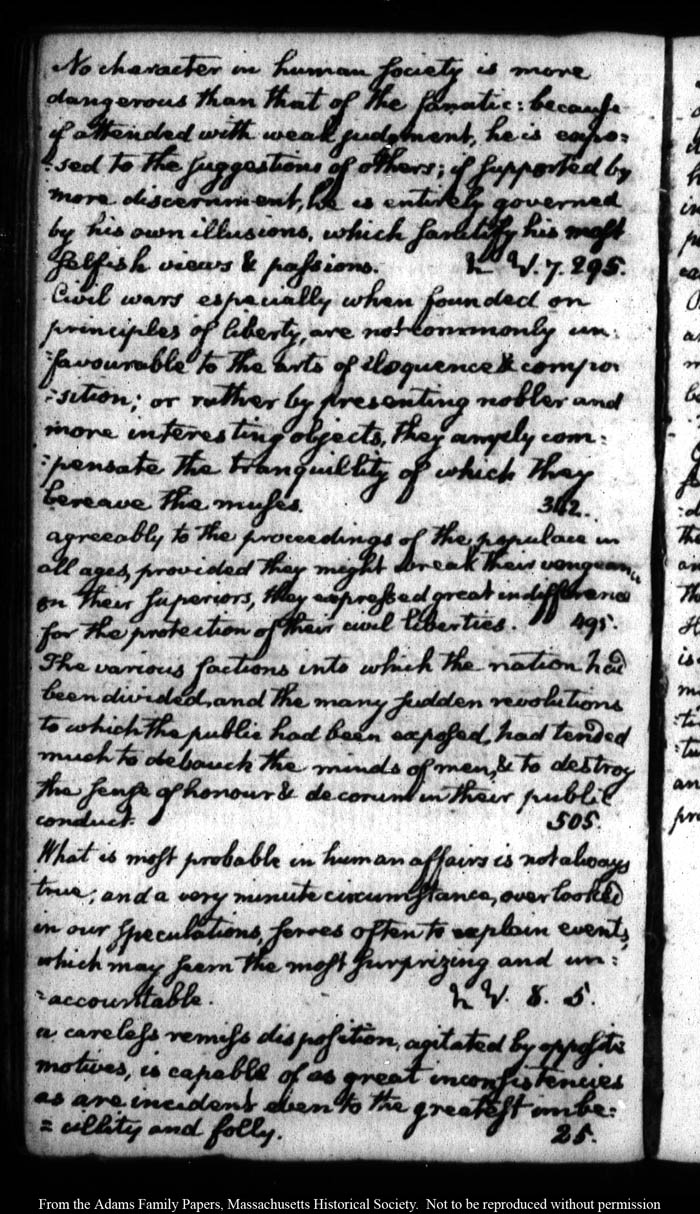 No character in human society is more
dangerous than that of the fanatic: because
if attended with weak judgment, he is expo=
=sed to the suggestions of others; if supported by
more discernment, he is entirely governed
by his own illusions, which sanctify his most
selfish views & passions. V. 7. 295.
Civil wars especially when founded on
principles of liberty, are not commonly un=
=favourable to the arts of eloquence & compo
=sition; or rather by presenting nobler and
more interesting objects, they amply com=
=pensate the tranquillity of which they
bereave the muses. 342.
agreeably to the proceedings of the populace in
all ages, provided they might wreak their vengeance
on their superiors, they expressed great indifference
for the protection of their civil liberties. 495.
The various factions into which the nation had
been divided, and the many sudden revolutions
to which the public had been exposed, had tended
much to debauch the minds of men, & to destroy
the sense of honour & decorum in their public
conduct. 505.
What is most probable in human affairs is not always
true; and a very minute circumstance, overlooked
in our speculations, serves often to explain events,
which may seem the most surprizing and un=
=accountable. V. 8. 5.
a careless remiss disposition, agitated by opposite
motives, is capable of as great inconsistencies
as are incident even to the greatest imbe=
=cillity and folly. 25.
From the Adams Family Papers, Massachusetts Historical Society. Not to be reproduced without permission